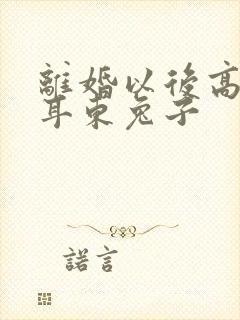 離婚以後高
耳東兔子
諾言